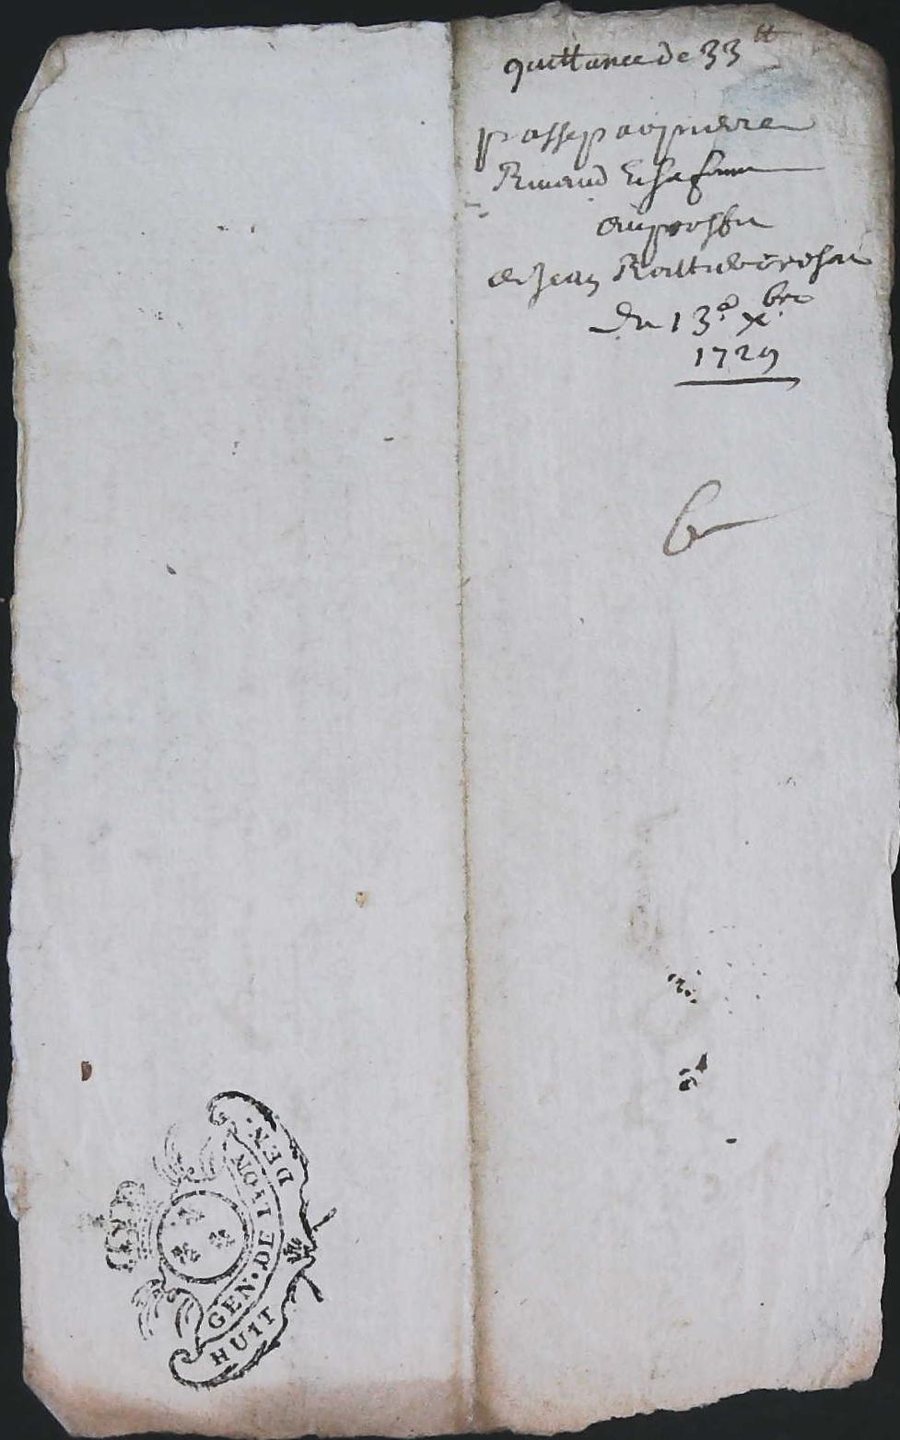 quittance de 33 tt
passe par pierre
Rivaud Et sa femme
au proffit
de Jean
du 13e xbre
1729
GEN. DE LION
HUIT DEN.